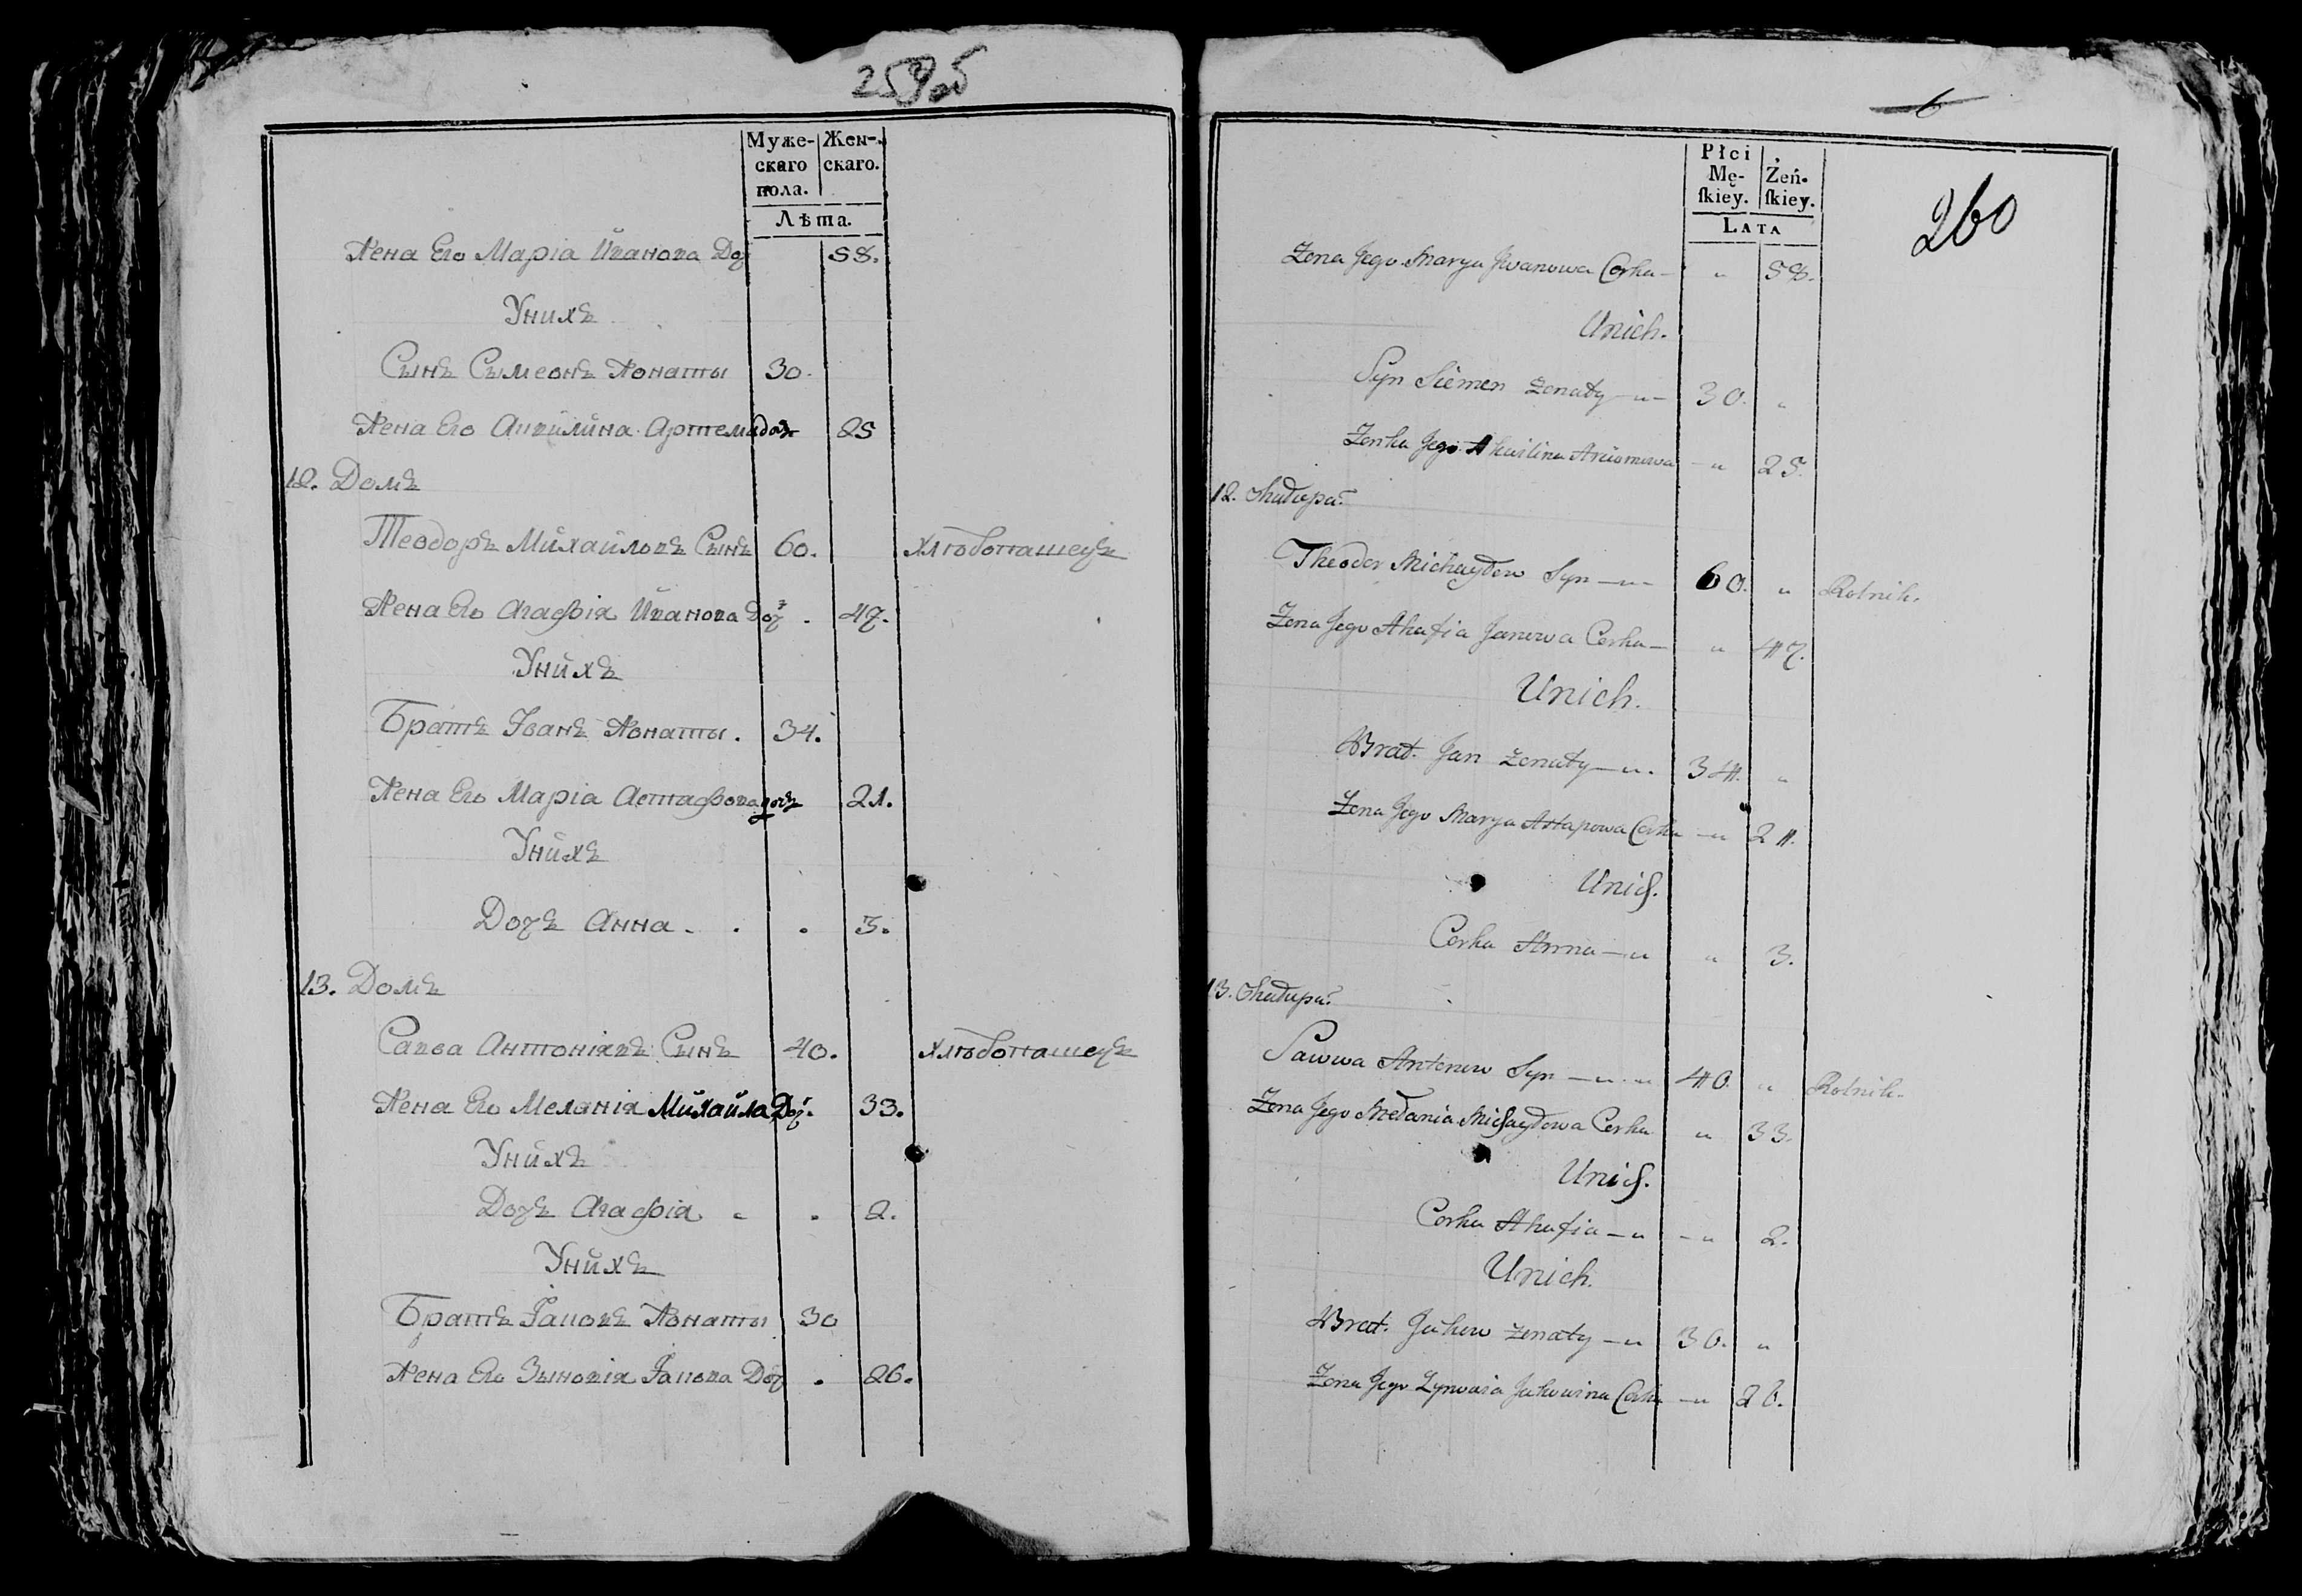 Муже- Жен-
скаго скаго.
пола.
Лѣта.
Жена Его Маріа Иванова Доч 58.
Унихъ
Сынъ Сымеонъ Жонаты 30.
Жена Его Акилина Артема дочъ 25
12. Домъ
Теодоръ Михайловъ Сынъ 60. Хлѣбопашецъ
Жена Его Агафія Иванова Доч 47.
Унихъ
Братъ Іванъ Жонаты. 34.
Жена Его Маріа Астафова дочъ 21.
Унихъ
Дочъ Анна . . . 3.
13. Домъ
Савва Антоніевъ Сынъ 40. Хлѣбопашецъ
Жена Его Меланія Михайла Доч. 33.
Унихъ
Дочъ Агафія . . 2.
Унихъ
Братъ Яковъ Жонаты 30
Жена Его Зыновія Якова Доч . 26.
6
260
Płci Żeń-
Mę- ſkiey.
ſkiey.
LATA
Zona Jego Marya Jwanowa Corka — " 58.
Unich.
Syn Siemen zonaty —"— 30. "
Zonka Jego Akuilina Arciomowa — " 25.
12.
Theodor Michayłow Syn —"— 60. " Rolnik.
Zona Jego Ahafia Janowa Corka — " 47.
Unich.
Brat Jan zonaty —". 34. "
Zona Jego Marya Astapowa Corka —" 21.
Unich.
Corka Anna —" " 3.
13.
Sawwa Antonow Syn —"." 40. " Rolnik.
Zona Jego Mełania Michayłowa Corka " 33.
Unich.
Corka Ahafia —" —" 2.
Unich.
Brat Jakow zonaty —" 30. "
Zona Jego Zynowia Jakowina Corka —" 26.